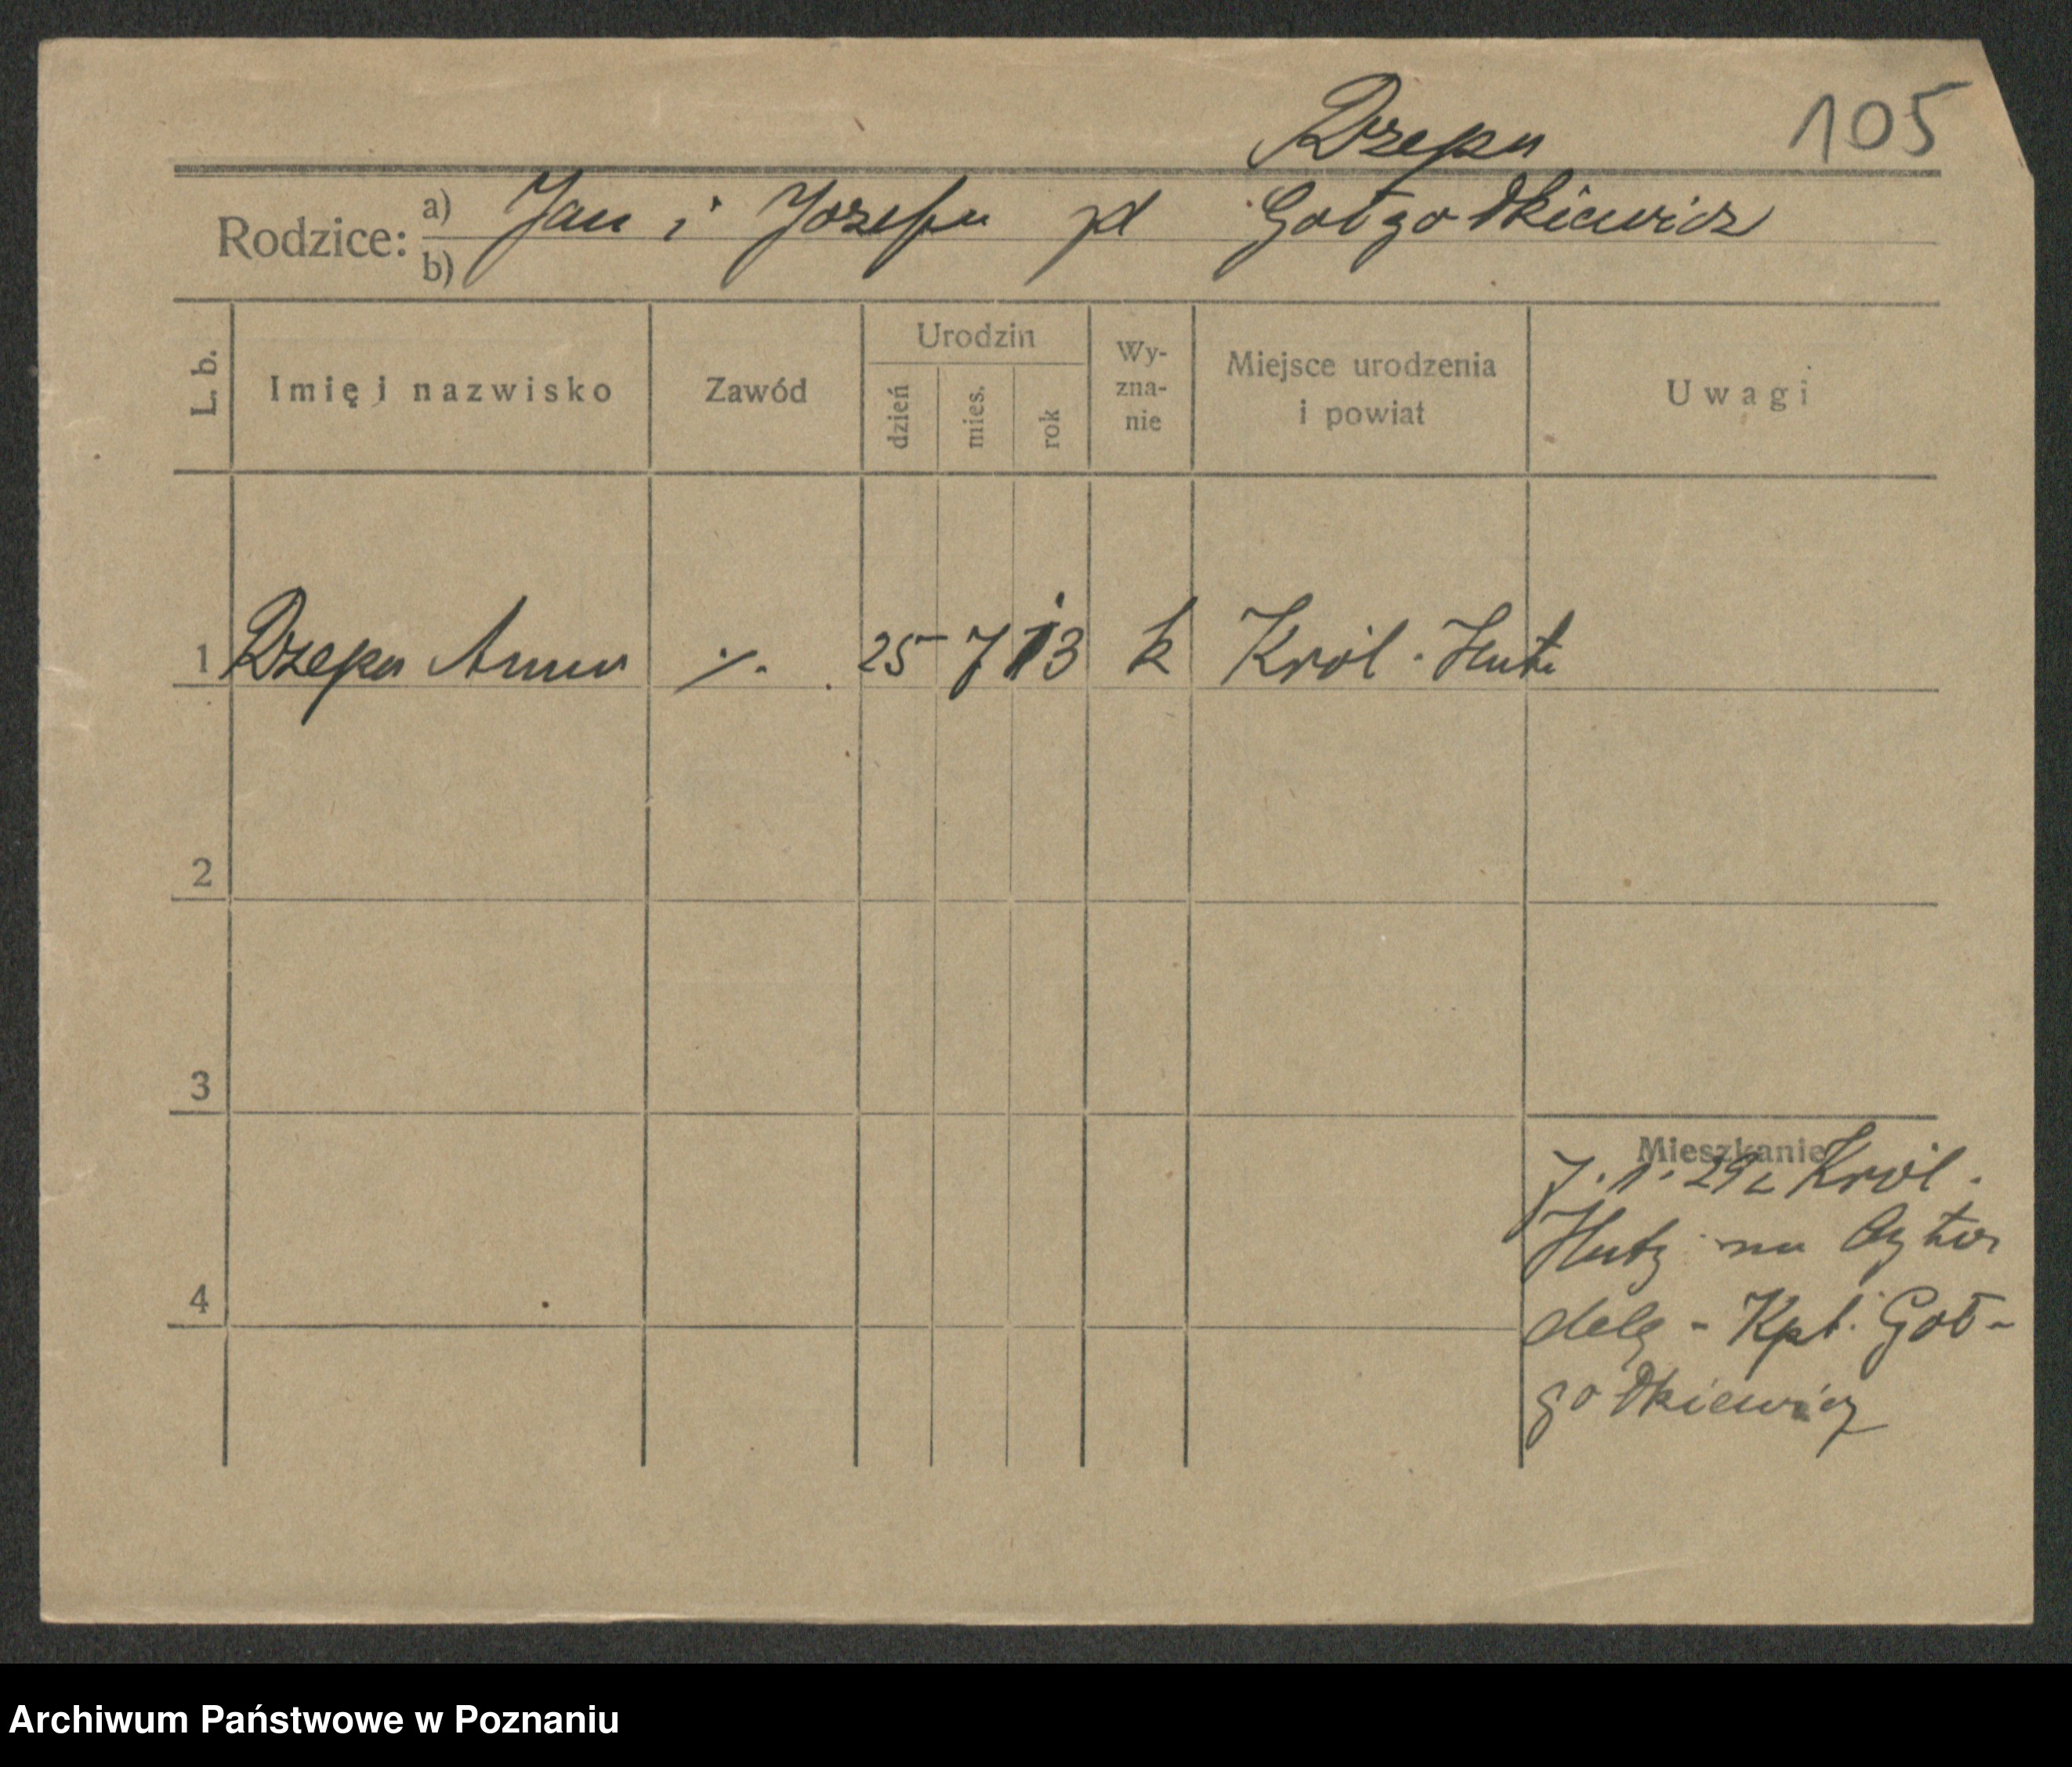 Rzepa 105
Rodzice: a) Jan i Józefa pł Gołgodkiewicz
b)
L. b. Imię i nazwisko Zawód Urodzin dzień mies. rok Wy-zna-nie Miejsce urodzenia i powiat Uwagi
1 Rzepa Anna ./. 25 7 13 k Król. Huta
2
3
Mieszkanie
7. 1. 29 z Król.
Huty na Cyta
4
delę - Kpt. Goł-
godkiewicz
Archiwum Państwowe w Poznaniu